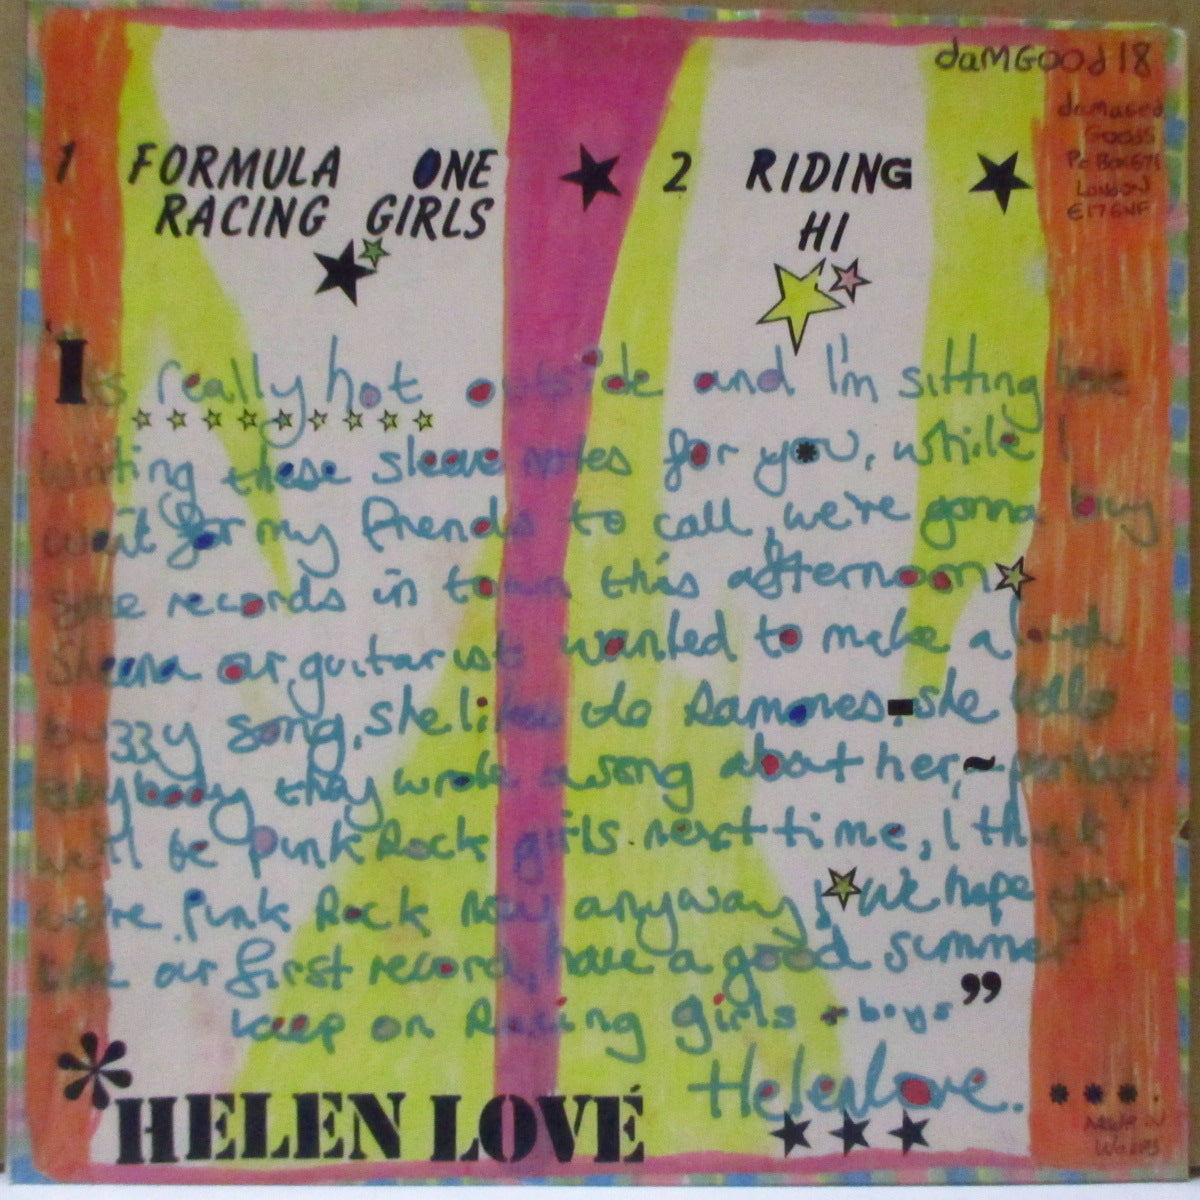 damGood 18
damaged
Goods
Po Box 671
LONDON
E17 6NF
1 FORMULA ONE
RACING GIRLS
2 RIDING
HI
"It's really hot outside and I'm sitting here
writing these sleeve notes for you, while I
wait for my friends to call, we're gonna buy
some records in town this afternoon
Sheena our guitarist wanted to make a
buzzy song, she likes de Ramones. she tells
everybody they wrote a song about her, ~ perhaps
we'll be Punk Rock girls next time, I think
we're Punk Rock now anyway! We hope you
like our first record, have a good summer
keep on Racing girls + boys"
Helen Love.
* HELEN LOVÉ
Made in
Wales